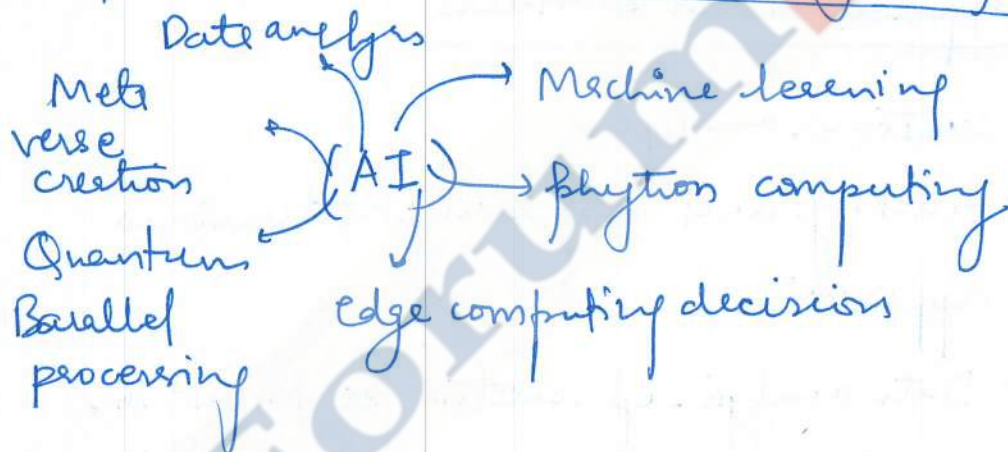 Data analysis
Meta
verse
creation
(AI)
Machine learning
phytion computing
Quantum
Parallel
processing
Edge computing decisions
forum